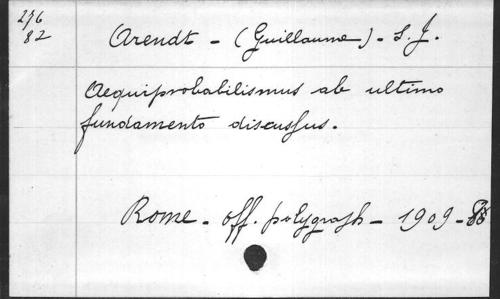 276
82
Arendt - (Guillaume) - S. J.
Aequiprobabilismus ab ultimo
fundamento discussus.
Rome - off. polygraph - 1909 -